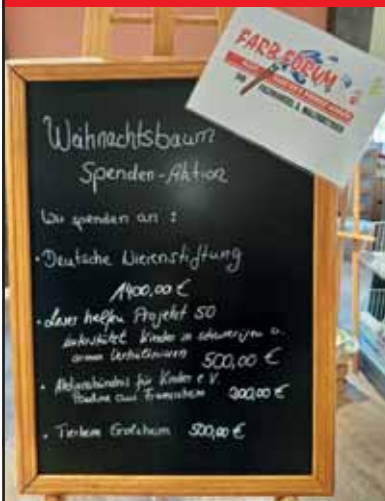 FARB-FORUM
Weihnachtsbaum
Spenden-Aktion
Wir spenden an :
• Deutsche Nierenstiftung
1400,00 €
• Leser helfen Projekt 50
unterstützt Kinder in schwierigen u.
armen Verhältnissen 500,00 €
• Aktionsbündnis für Kinder e.V.
aus 300,00 €
• Tierheim 500,00 €